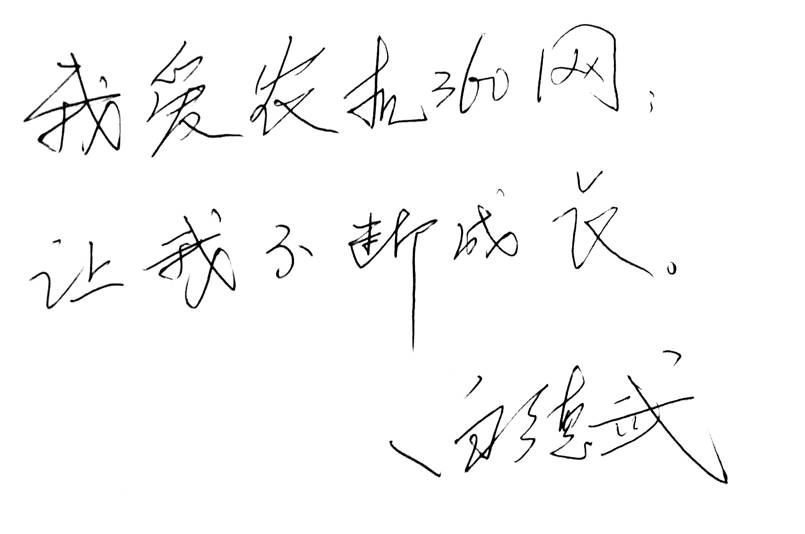 我爱农机360网;
让我不断成长。
白德武